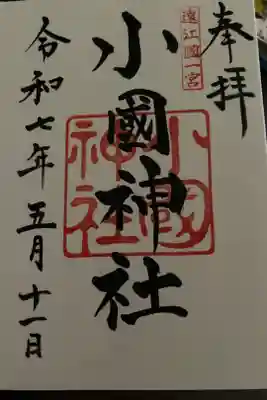 奉拝
遠江國一宮
小國神社
小國神社
令和七年五月十一日